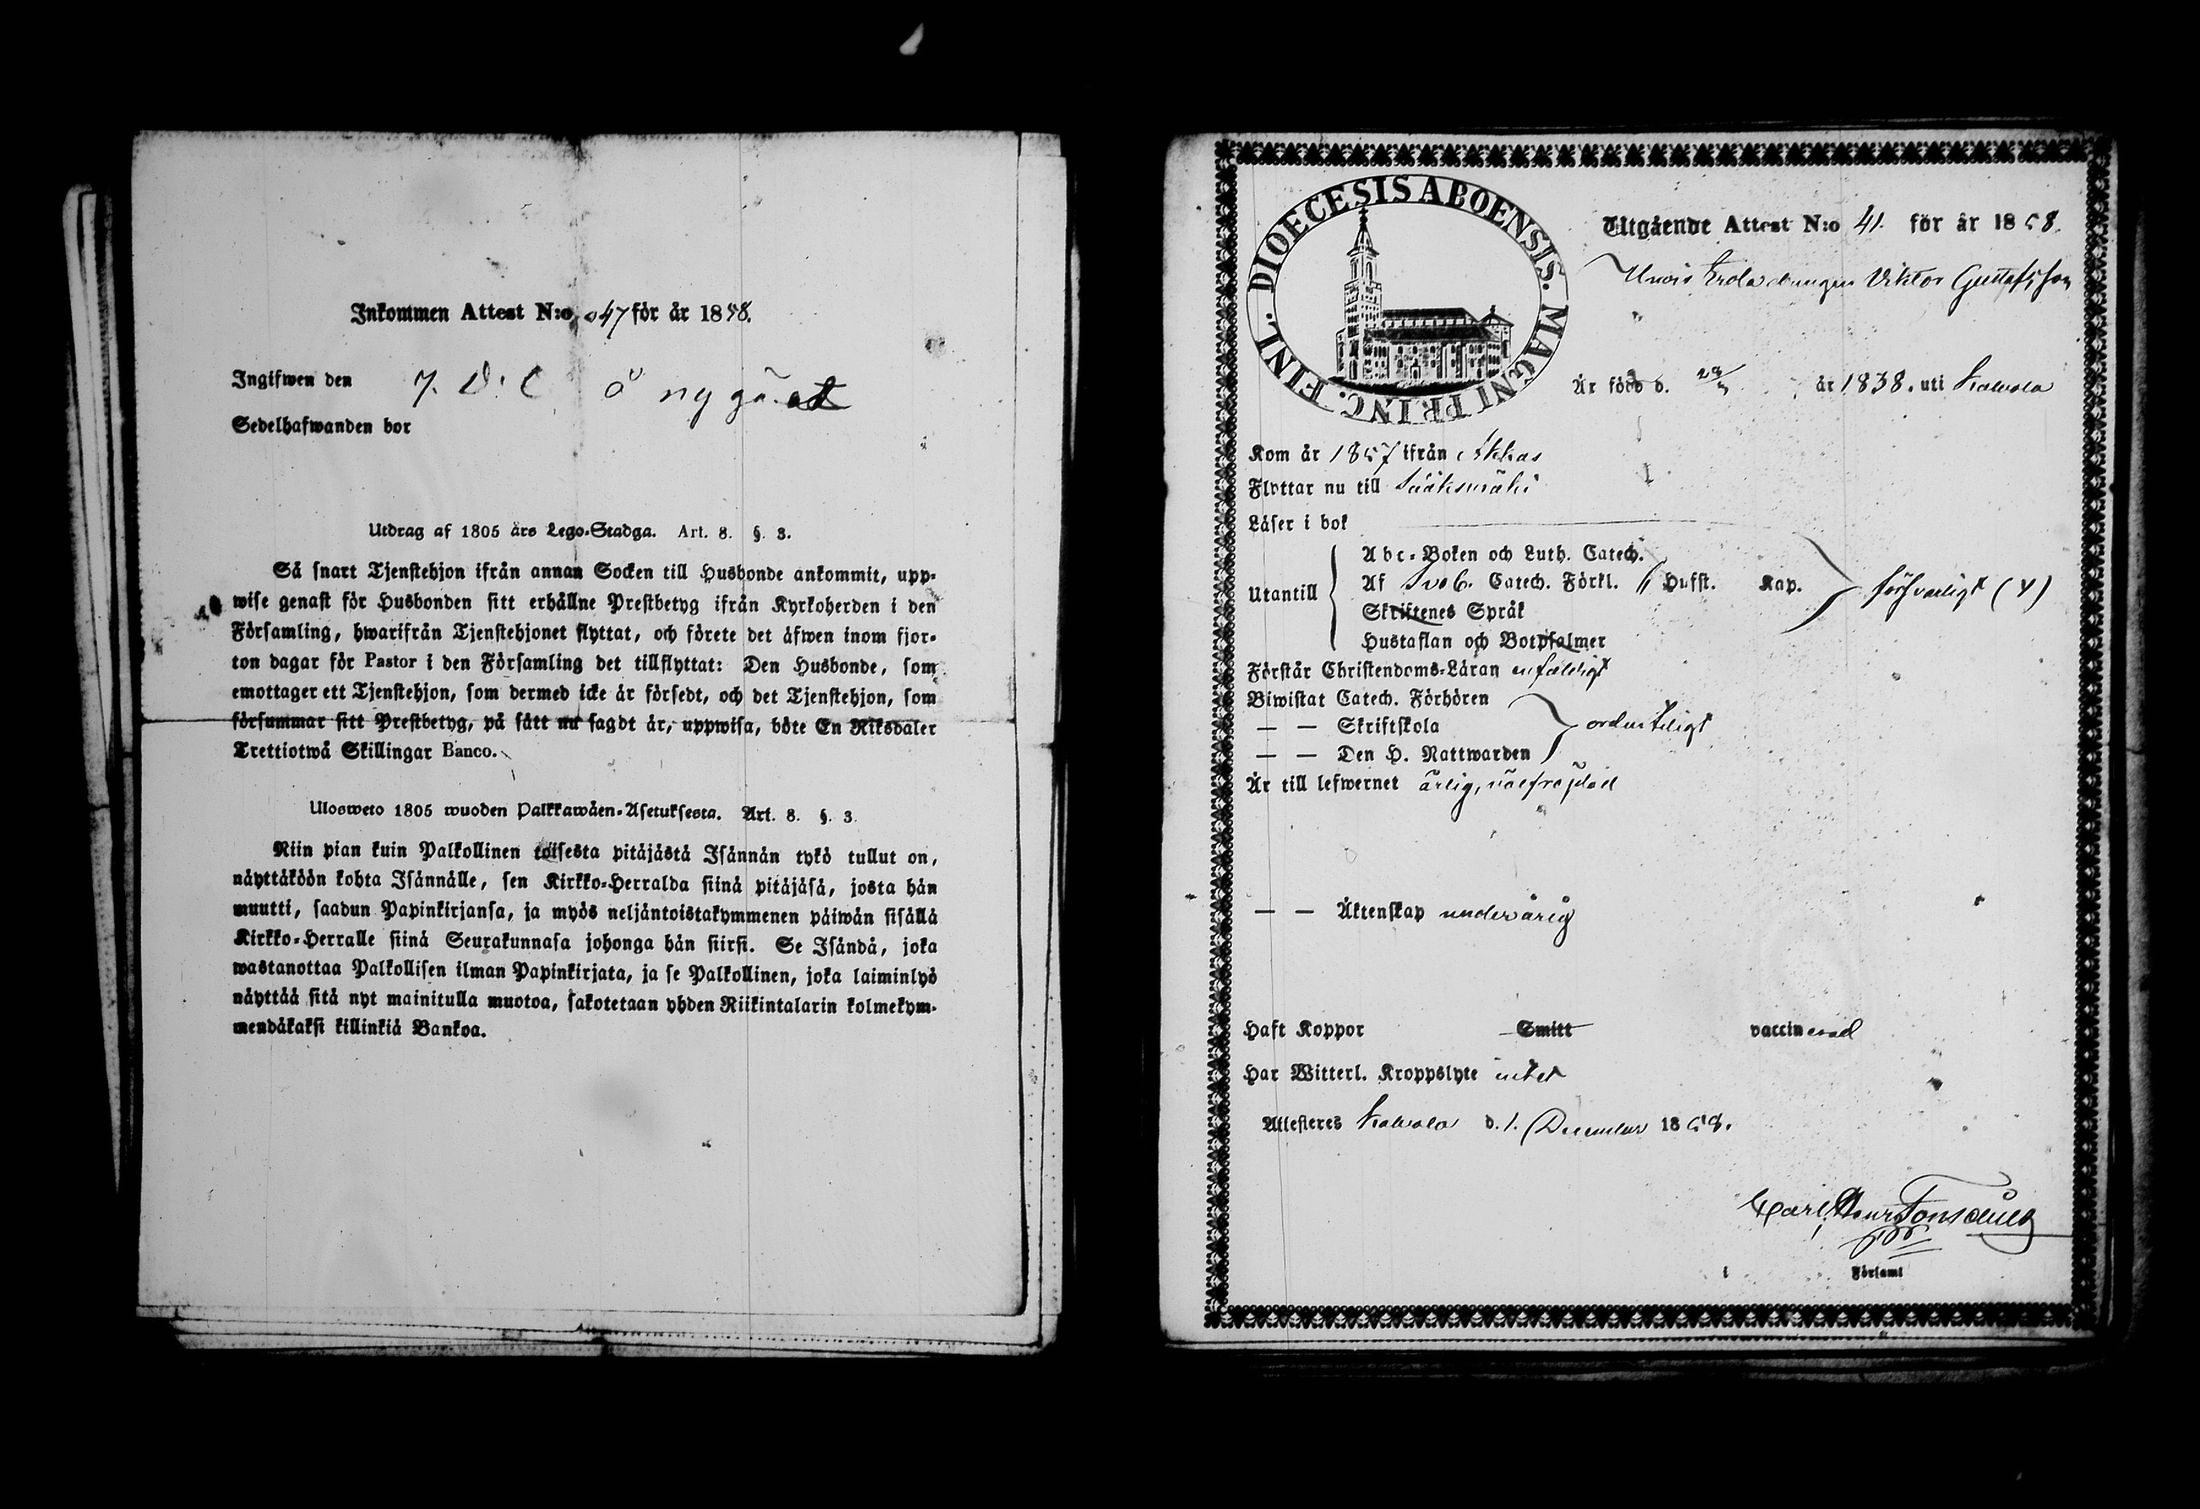 Inkommen Attest N:o 47 för år 1858.
Ingifwen den 7. D. C. å nygård
Sedelhafwanden bor
Utdrag af 1805 års Lego-Stadga. Art. 8. §. 3.
Så snart Tjenstehjon ifrån annan Socken till Husbonde ankommit, upp-
wise genast för Husbonden sitt erhållne Prestbetyg ifrån Kyrkoherden i den
Församling, hwarifrån Tjenstehjonet flyttat, och förete det äfwen inom fjor-
ton dagar för Pastor i den Församling det tillflyttat: Den Husbonde, som
emottager ett Tjenstehjon, som dermed icke är försedt, och det Tjenstehjon, som
försummar sitt Prestbetyg, på sätt nu sagdt är, uppwisa, böte En Riksdaler
Trettiotwå Skillingar Banco.
Ulosweto 1805 wuoden Palkkawäen-Asetuksesta. Art. 8. §. 3.
Niin pian kuin Palkollinen toisesta pitäjästä Isännän tykö tullut on,
näyttäköön kohta Isännälle, sen Kirkko-Herralda siinä pitäjäsä, josta hän
muutti, saadun Papinkirjansa, ja myös neljäntoistakymmenen päiwän sisällä
Kirkko-Herralle siinä Seurakunnasa johonga hän siirsi. Se Isändä, joka
wastanottaa Palkollisen ilman Papinkirjata, ja se Palkollinen, joka laiminlyö
näyttää sitä nyt mainitulla muotoa, sakotetaan yhden Riikintalarin kolmekym-
mendäkaksi killinkiä Bankoa.
DIOECESIS ABOENSIS. MAGNI PRINC. FINL.
Utgående Attest N:o 41. för år 1858.
Viktor Gustafsson
Är född d. år 1838. uti Kalvola
Kom år 1857 ifrån Akkas
Flyttar nu till Sääksmäki
Läser i bok
Utantill
Abc-Boken och Luth. Catech.
Af Sveb. Catech. Förkl. 4 Hufst. Kap.
Skriftenes Språk
Hustaflan och Botpsalmer
försvarligt (4)
Förstår Christendoms-Läran enfaldigt
Biwistat Catech. Förhören
— — Skriftskola
— — Den H. Nattwarden
ordenteligt
Är till lefwernet ärlig, välfrejdad
— — Äktenskap underårig
Haft Koppor Smitt vaccinerad
Har Witterl. Kroppslyte intet
Attesteres Kalvola d. 1. December 1858.
i Församl